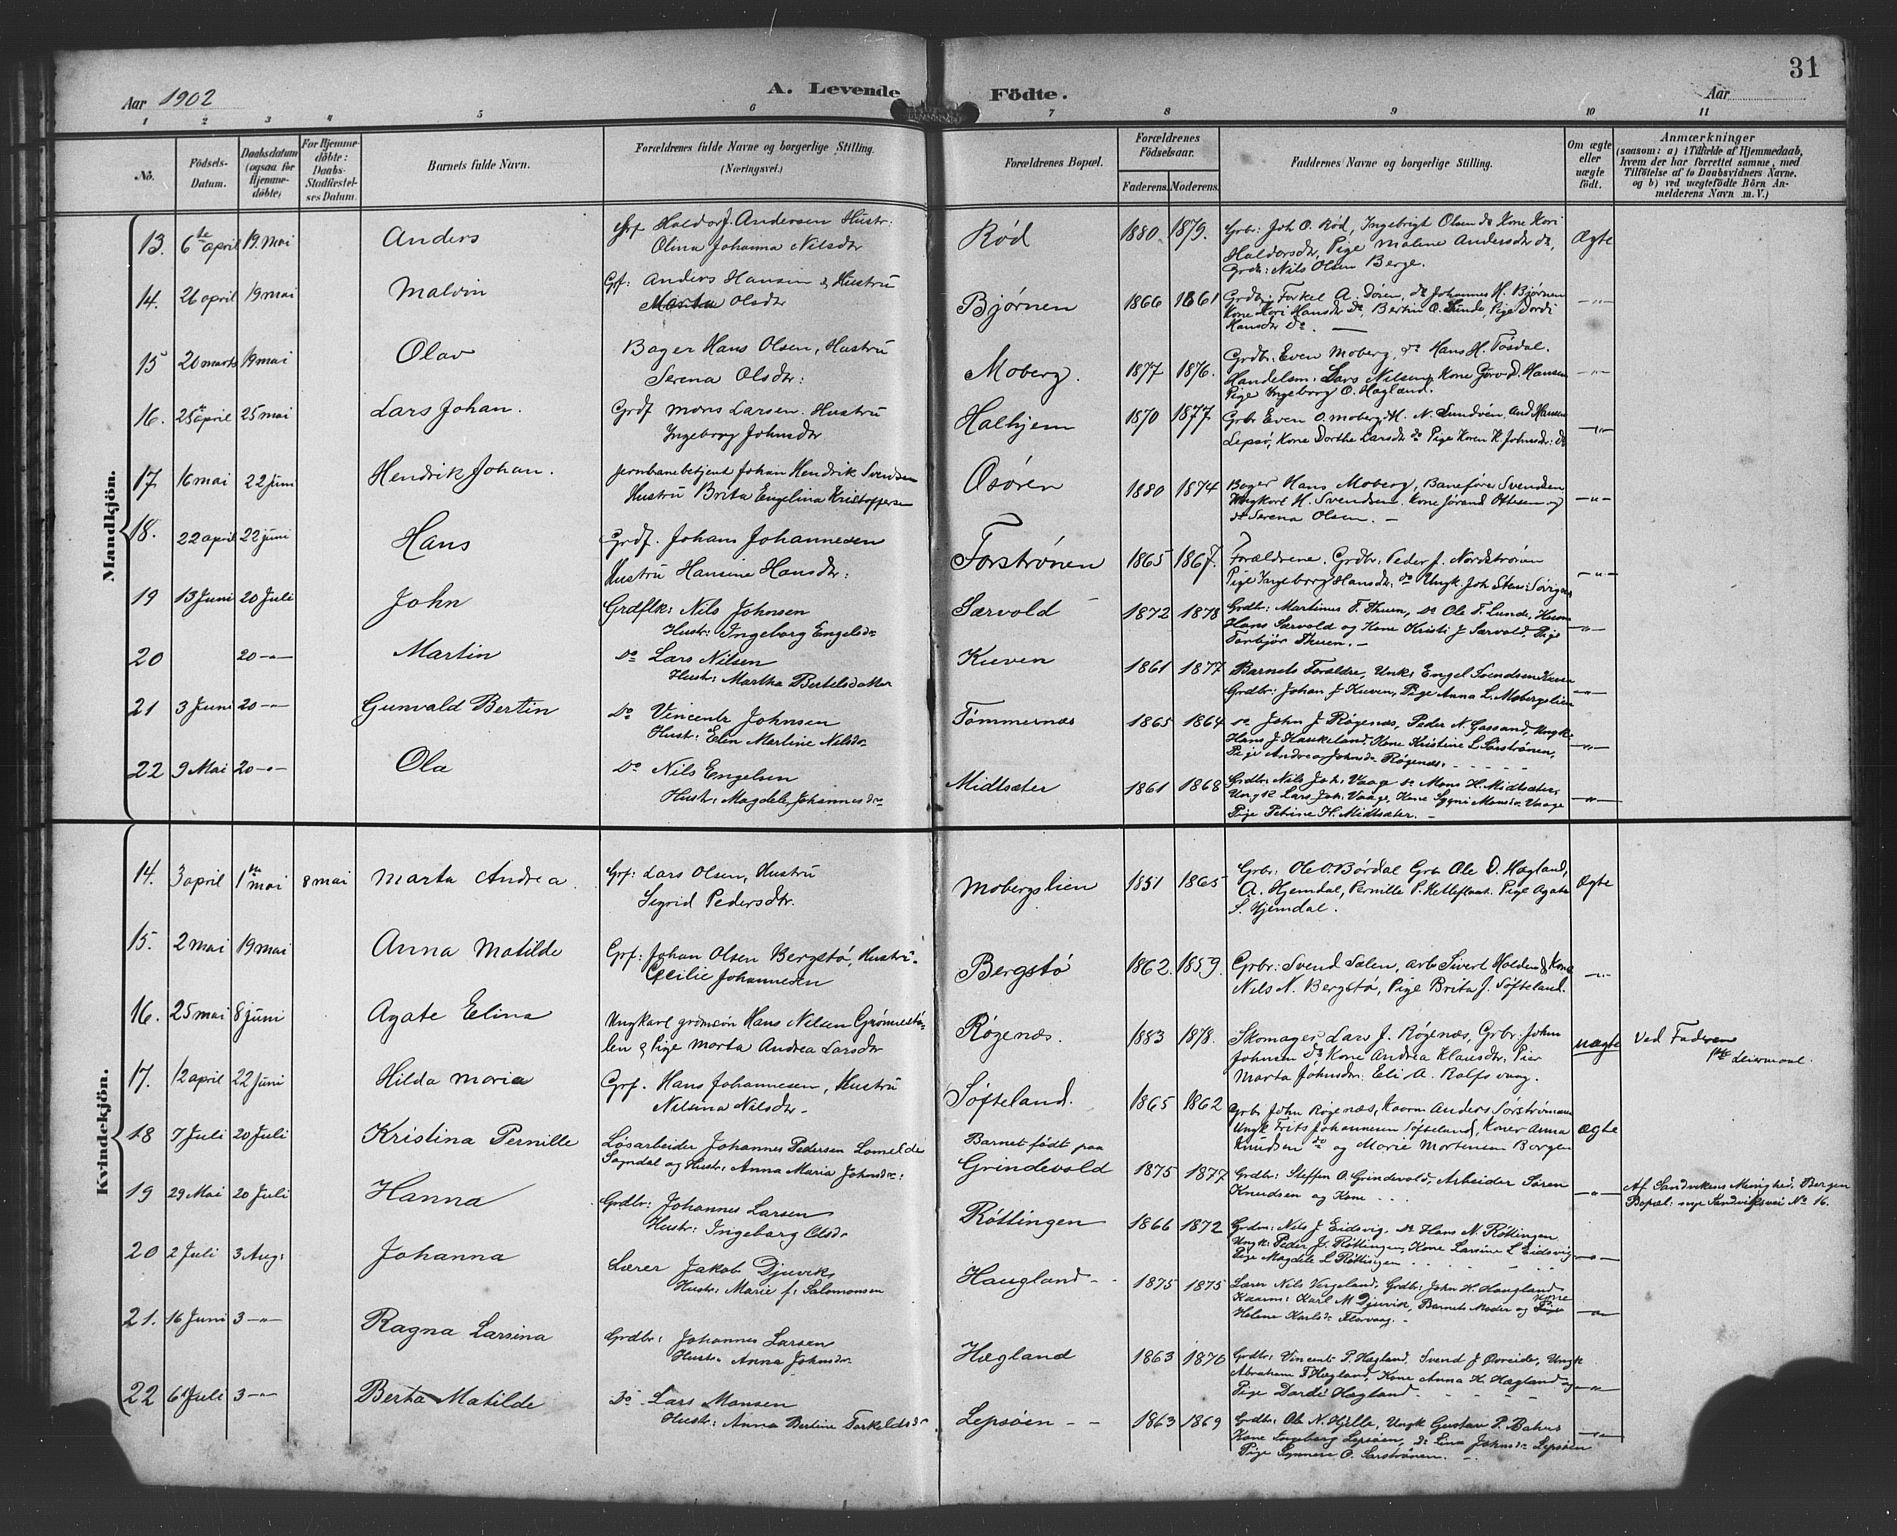 31
Aar 1902
A. Levende Födte.
Aar
1 2 3 4 5 6 7 8 9 10 11
No.
Födsels-Datum.
Daabsdatum (ogsaa for Hjemme-döbte)
For Hjemme-döbte: Daabs-Stadfæstel-ses Datum.
Barnets fulde Navn.
Forældrenes fulde Navne og borgerlige Stilling.
(Næringsvei.)
Forældrenes Bopæl.
Forældrenes Födselsaar.
Faderens. Moderens.
Faddernes Navne og borgerlige Stilling.
Om ægte eller uægte födt.
Anmærkninger
(saasom: a) i Tilfælde af Hjemmedaab, hvem der har forrettet samme, med Tilföielse af to Daabsvidners Navne, og b) ved uægtefödte Börn An-melderens Navn m. V.)
Mandkjön.
13. 6te april 19 mai Anders
Grf Haldor J. Andersen Hustr:
Olina Johanna Nilsdtr
Rød 1880 1879.
Grbr: Joh. O. Rød, Ingebrigt Olsen do Kone Kari
Haldorsdtr, Pige Malene Andersdtr do,
Grdr: Nils Olsen Berge.
Ægte
14. 26 april 19 mai Malvin
Gf: Anders Hansen & Hustru
Marta Olsdtr
Bjørnen 1866 1861
Grdbr: Torkel A. Døsen, do Johannes H. Bjørnen
Kone Kari Hansdtr do, Bertin O. Lunde, Pige Dordi
Hansdtr do. —
—"—
15 20 marts 19 mai Olav
Bager Hans Olsen, Hustru
Serena Olsdtr:
Moberg. 1877 1876.
Grdbr: Even Moberg, do Hans H. Tøsdal.
Handelsm: Lars Nilsen, Kone Gjørv. D. Hansen
Pige Ingeborg O. Hagland.
—"—
16. 25de april 25 mai Lars Johan.
Grdf Mons Larsen. Hustru
Ingeborg Johnsdtr
Halhjem 1870 1877.
Grbr Even O. Moberg, H. N. Lundøen, And Hansen
Lepsø, Kone Dorthe Larsdtr do Pige Karen K. Johnsdr: do
—"—
17 16 mai 22 juni Hendrik Johan.
Jernbanebetjent Johan Hendrik Svendsen
Hustru Brita Engelina Kristoffersen
Osøren 1880 1874
Bager Hans Moberg, Banefører Svendsen
Ungkarl H. Svendsen. Kone Jørand Ottesen og
do Serena Olsen. —
—"—
18. 22 april 22 juni Hans
Grdf. Johans Johannesen
Hustru Hansine Hansdtr:
1865 1867.
Forældrene. Grdbr: Peder J. Nordstrøen
Pige Ingeborg Hansdtr. do Ungk. Joh
—"—
19 13 Juni 20 Juli John
Grdflk: Nils Johnsen
Hustr: Ingeborg Engelsdr
Særvold 1872 1878
Grdbr: Martinus T. Thuen, do Ole T. Lunde,
Hans Særvold og Kone Kristi J Særvold. Pige
Thuen. —
—"—
20 20 —"— Martin
Do Lars Nilsen
Hustr: Martha Bertelsdatter
Kuven 1861 1877
Barnets Forældre, Unk: Engel Svendsen Kuven
Grdbr: Johan J Kuven, Pige Anna L. Mobergslien
—"—
21 3 Juni 20 —"— Gunvald Bertin
Do Vincents Johnsen
Hust: Elen Martine Nilsdr
Tømmernæs 1865 1864
do John J. Røgenæs, Peder N. Gaasand, Ungk:
Hans J Haukeland, Kone Kristine L Sørstrønen,
Pige Andrea Johnsdr Røgenæs.
—"—
22 9 Mai 20 —"— Ola
Do Nils Engelsen
Hust: Magdele Johannesdr
Midtsæter 1861 1868
Grdbr: Nils Joh. Vaage do Mons H. Midtsæter,
Ungk Lars Joh. Vaage, Kone Mons. Vaage
Pige Petrine H. Midtsæter. —
—"—
Kvindekjön.
14. 3 april 1ste mai 8 mai Marta Andrea.
Grf: Lars Olsen, Hustru
Sigrid Pedersdtr.
Mobergslien 1851 1865
Grbr: Ole O. Børdal Grb Ole D. Hagland,
A. Hjemdal, Pernille P. Pige Agate
S. Hjemdal.
Ægte
15. 2 mai 19 mai Anna Matilde
Grf: Johan Olsen Bergstø, Hustru:
Cecilie Johannesen
Bergstø 1862. 1859.
Grbr: Svend Sælen, arb Sivert Holden & Kone
Nils N. Bergstø, Pige Brita J. Søfteland.
—"—
16. 25 mai 8 juni Agate Elina
Ungkarl Hans Nilsen
& Pige Marta Andrea Larsdtr
Røgenæs. 1883 1878.
Skomager Lars J. Røgenæs, Grbr: John
Johnsen do Kone Andrea Klausdtr, Piger
Marta Johnsdr. Eli A. Rolfsvaag.
uægte
Ved Faderen
Leiermaal.
17. 12 april 22 juni Hilda Maria
Grf. Hans Johannesen, Hustru
Nilsina Nilsdtr.
Søfteland. 1865 1862
Grbr John Røgenæs, Anders Sørstrømen
Ungk Frits Johannesen Søfteland, Koner Anna
Knudsen do og Marie Mortensen Borgen
Ægte
18 7 Juli 20 Juli Kristina Pernille
Løsarbeider Johannes Pedersen Lomelde
Sogndal og Hustr: Anna Maria Johnsdr:
Barnet født paa
Grindevold 1875 1877
Grdbr: Steffen O. Grindevold, Arbeider Søren
Knudsen og Kone . . .
—"—
Af Sandvikens Menighed, Bergen
Bopæl: nye Sandviksvei No 16.
19 29 Mai 20 Juli Hanna
Grdbr: Johannes Larsen
Hustr: Ingeborg Olsdr
Røttingen 1866 1872
Grdm: Nils J Eidsvig, do Hans N. Røttingen
Ungk: Peder J. Røttingen, Kone Larsine L Eidsvig
Pige Magdele L Røttingen
—"—
20 2 Juli 3 Aug: Johanna
Lærer Jakob Djuvik,
Hustr: Marie f: Salomonsen
Haugland 1875 1875
Lærer Nils Vergeland, Grdbr: John H. Haugland
Karl M Djuvik, Barnets Moder og Kone
Helene Karlsdr Florvaag.
—"—
21. 16 Juni 3 —"— Ragna Larsina
Grdbr: Johannes Larsen
Hustr. Anna Johnsdr.
Hegland 1863 1870
Grdbr: Vincents P. Hegland, Svend J Øvreide, Ungk
Abraham T Hegland, Kone Anna H. Hegland og
Pige Dardi Hegland
—"—
22 6 Juli 3 —"— Berta Matilde
Do Lars Monsen
Hustr: Anna Bertine Torkeldsdr
Lepsøen 1863 1869
Grdbr: Ole N. Hjelle, Ungk Gustav P. Bahus
Kone Ingeborg Lepsøen, do Lina Johnsdr Lepsøen
Pige Synneve O. Sørstrønen.
—"—